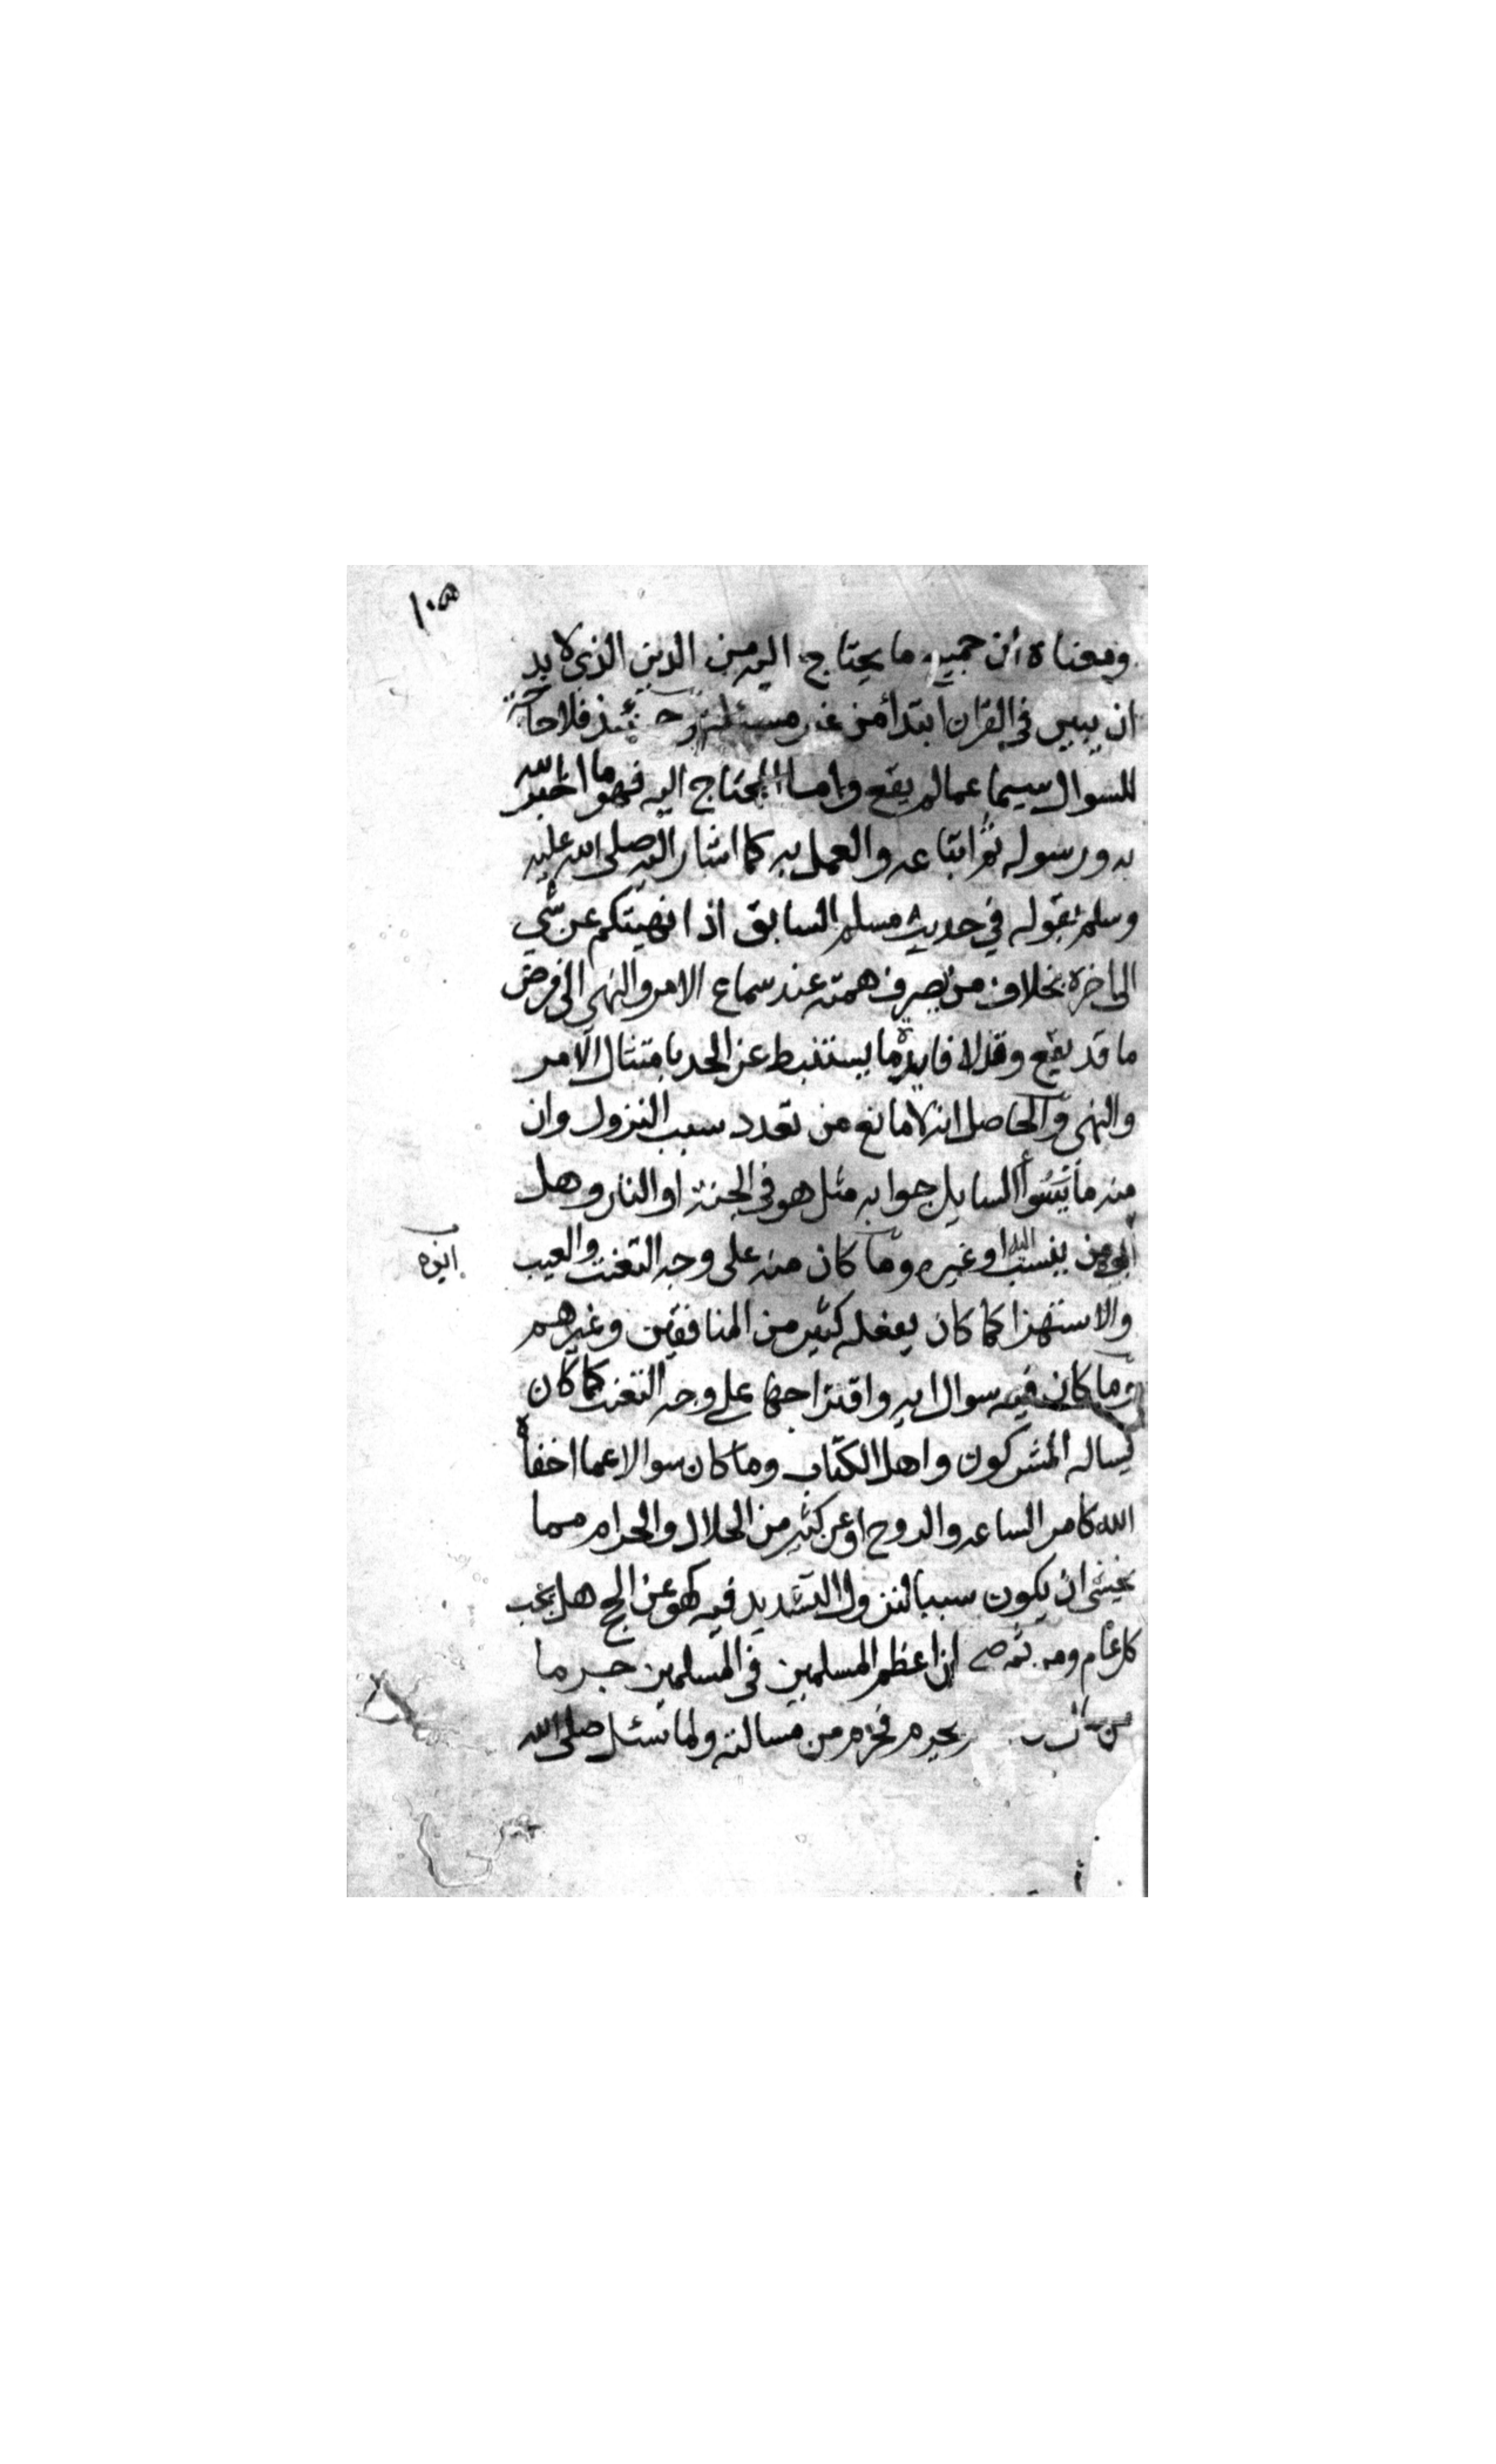 ١٠٥
ومعناه أن جميع ما يحتاج اليه من الدين الذي لا بد
ان يبين في القران ابتدأ من غير مسئلة وحينئذ فلا حاجة
للسوال سيما عما لم يقع وانما المحتاج اليه فهو ما اخبر الله
به ورسوله ثم اتباعه والعمل به كما اشار اليه صلى الله عليه
وسلم بقوله في حديث مسلم السابق اذا نهيتكم عن شي
الى اخره بخلاف من يصرف همته عند سماع الامر والنهي الى فرض
ما قد يقع وقد لا فايدة ما يستنبط عن الجد بامتثال الامر
والنهي والحاصل انه لا مانع من تعدد سبب النزول وان
منه ما يسوأ السايل جوابه مثل هو في الجنة او النار وهل
ابوه من ينسب اليه او غيره وما كان منه على وجه التعنت والعيب
ابوه
والاستهزا كما كان يفعله كثير من المنافقين وغيرهم
وما كان فيه سوال ايه واقتراحها على وجه التعنت كما كان
يساله المشركون واهل الكتاب وما كان سوالا عما اخفاه
الله كامر الساعه والروح او عن كثير من الحلال والحرام مما
يخشى ان يكون سببا لنزول التشديد فيه كهو عن الحج هل يجب
كل عام ومن ثم صح ان اعظم المسلمين في المسلمين جرما
من سال يحرم فحرم من مسالته ولما سئل صلى الله